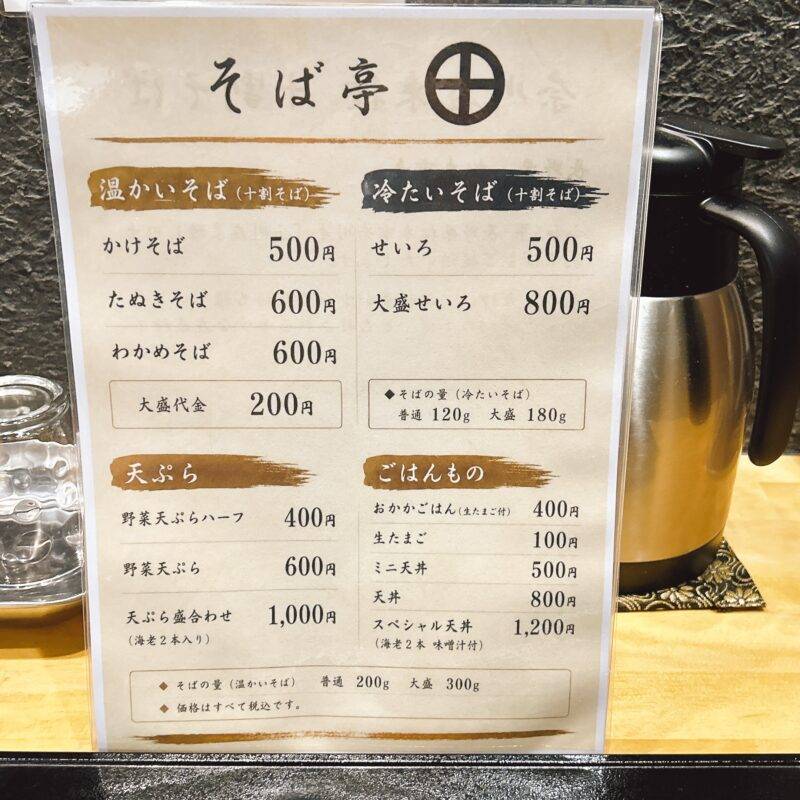 そば亭
温かいそば(十割そば)
かけそば 500円
たぬきそば 600円
わかめそば 600円
大盛代金 200円
冷たいそば(十割そば)
せいろ 500円
大盛せいろ 800円
◆そばの量(冷たいそば)
普通 120g 大盛 180g
天ぷら
野菜天ぷらハーフ 400円
野菜天ぷら 600円
天ぷら盛合わせ 1,000円
(海老2本入り)
ごはんもの
おかかごはん(生たまご付) 400円
生たまご 100円
ミニ天丼 500円
天丼 800円
スペシャル天丼 1,200円
(海老2本 味噌汁付)
◆ そばの量(温かいそば) 普通 200g 大盛 300g
◆ 価格はすべて税込です。